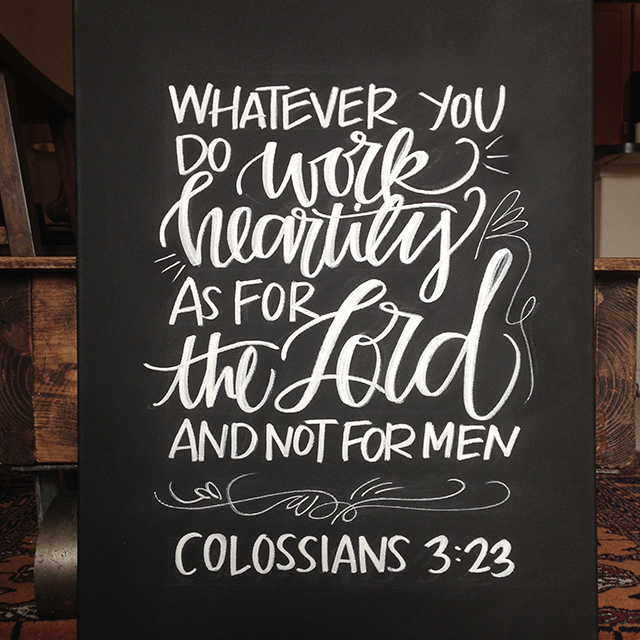 WHATEVER YOU
DO work
heartily
AS FOR
the Lord
AND NOT FOR MEN
COLOSSIANS 3:23